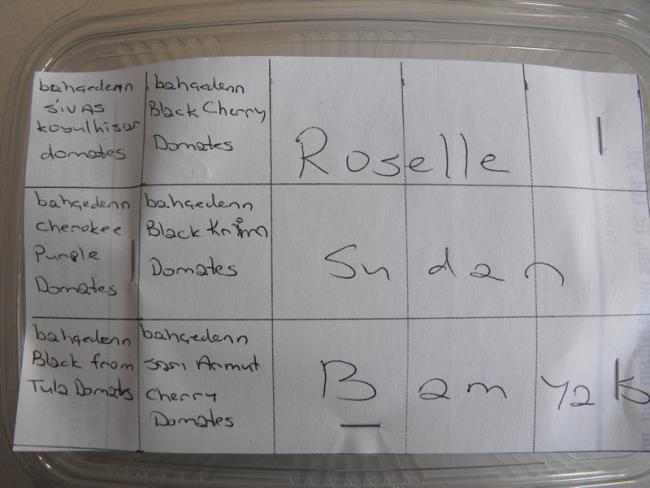 bahçedenn
SİVAS
koyulhisar
domates
bahçedenn
Black Cherry
Domates
Roselle
bahçedenn
Cherokee
Purple
Domates
bahçedenn
Black Krim
Domates
Sudan
bahçedenn
Black from
Tula Domates
bahçedenn
sarı Armut
Cherry
Domates
Bamyası